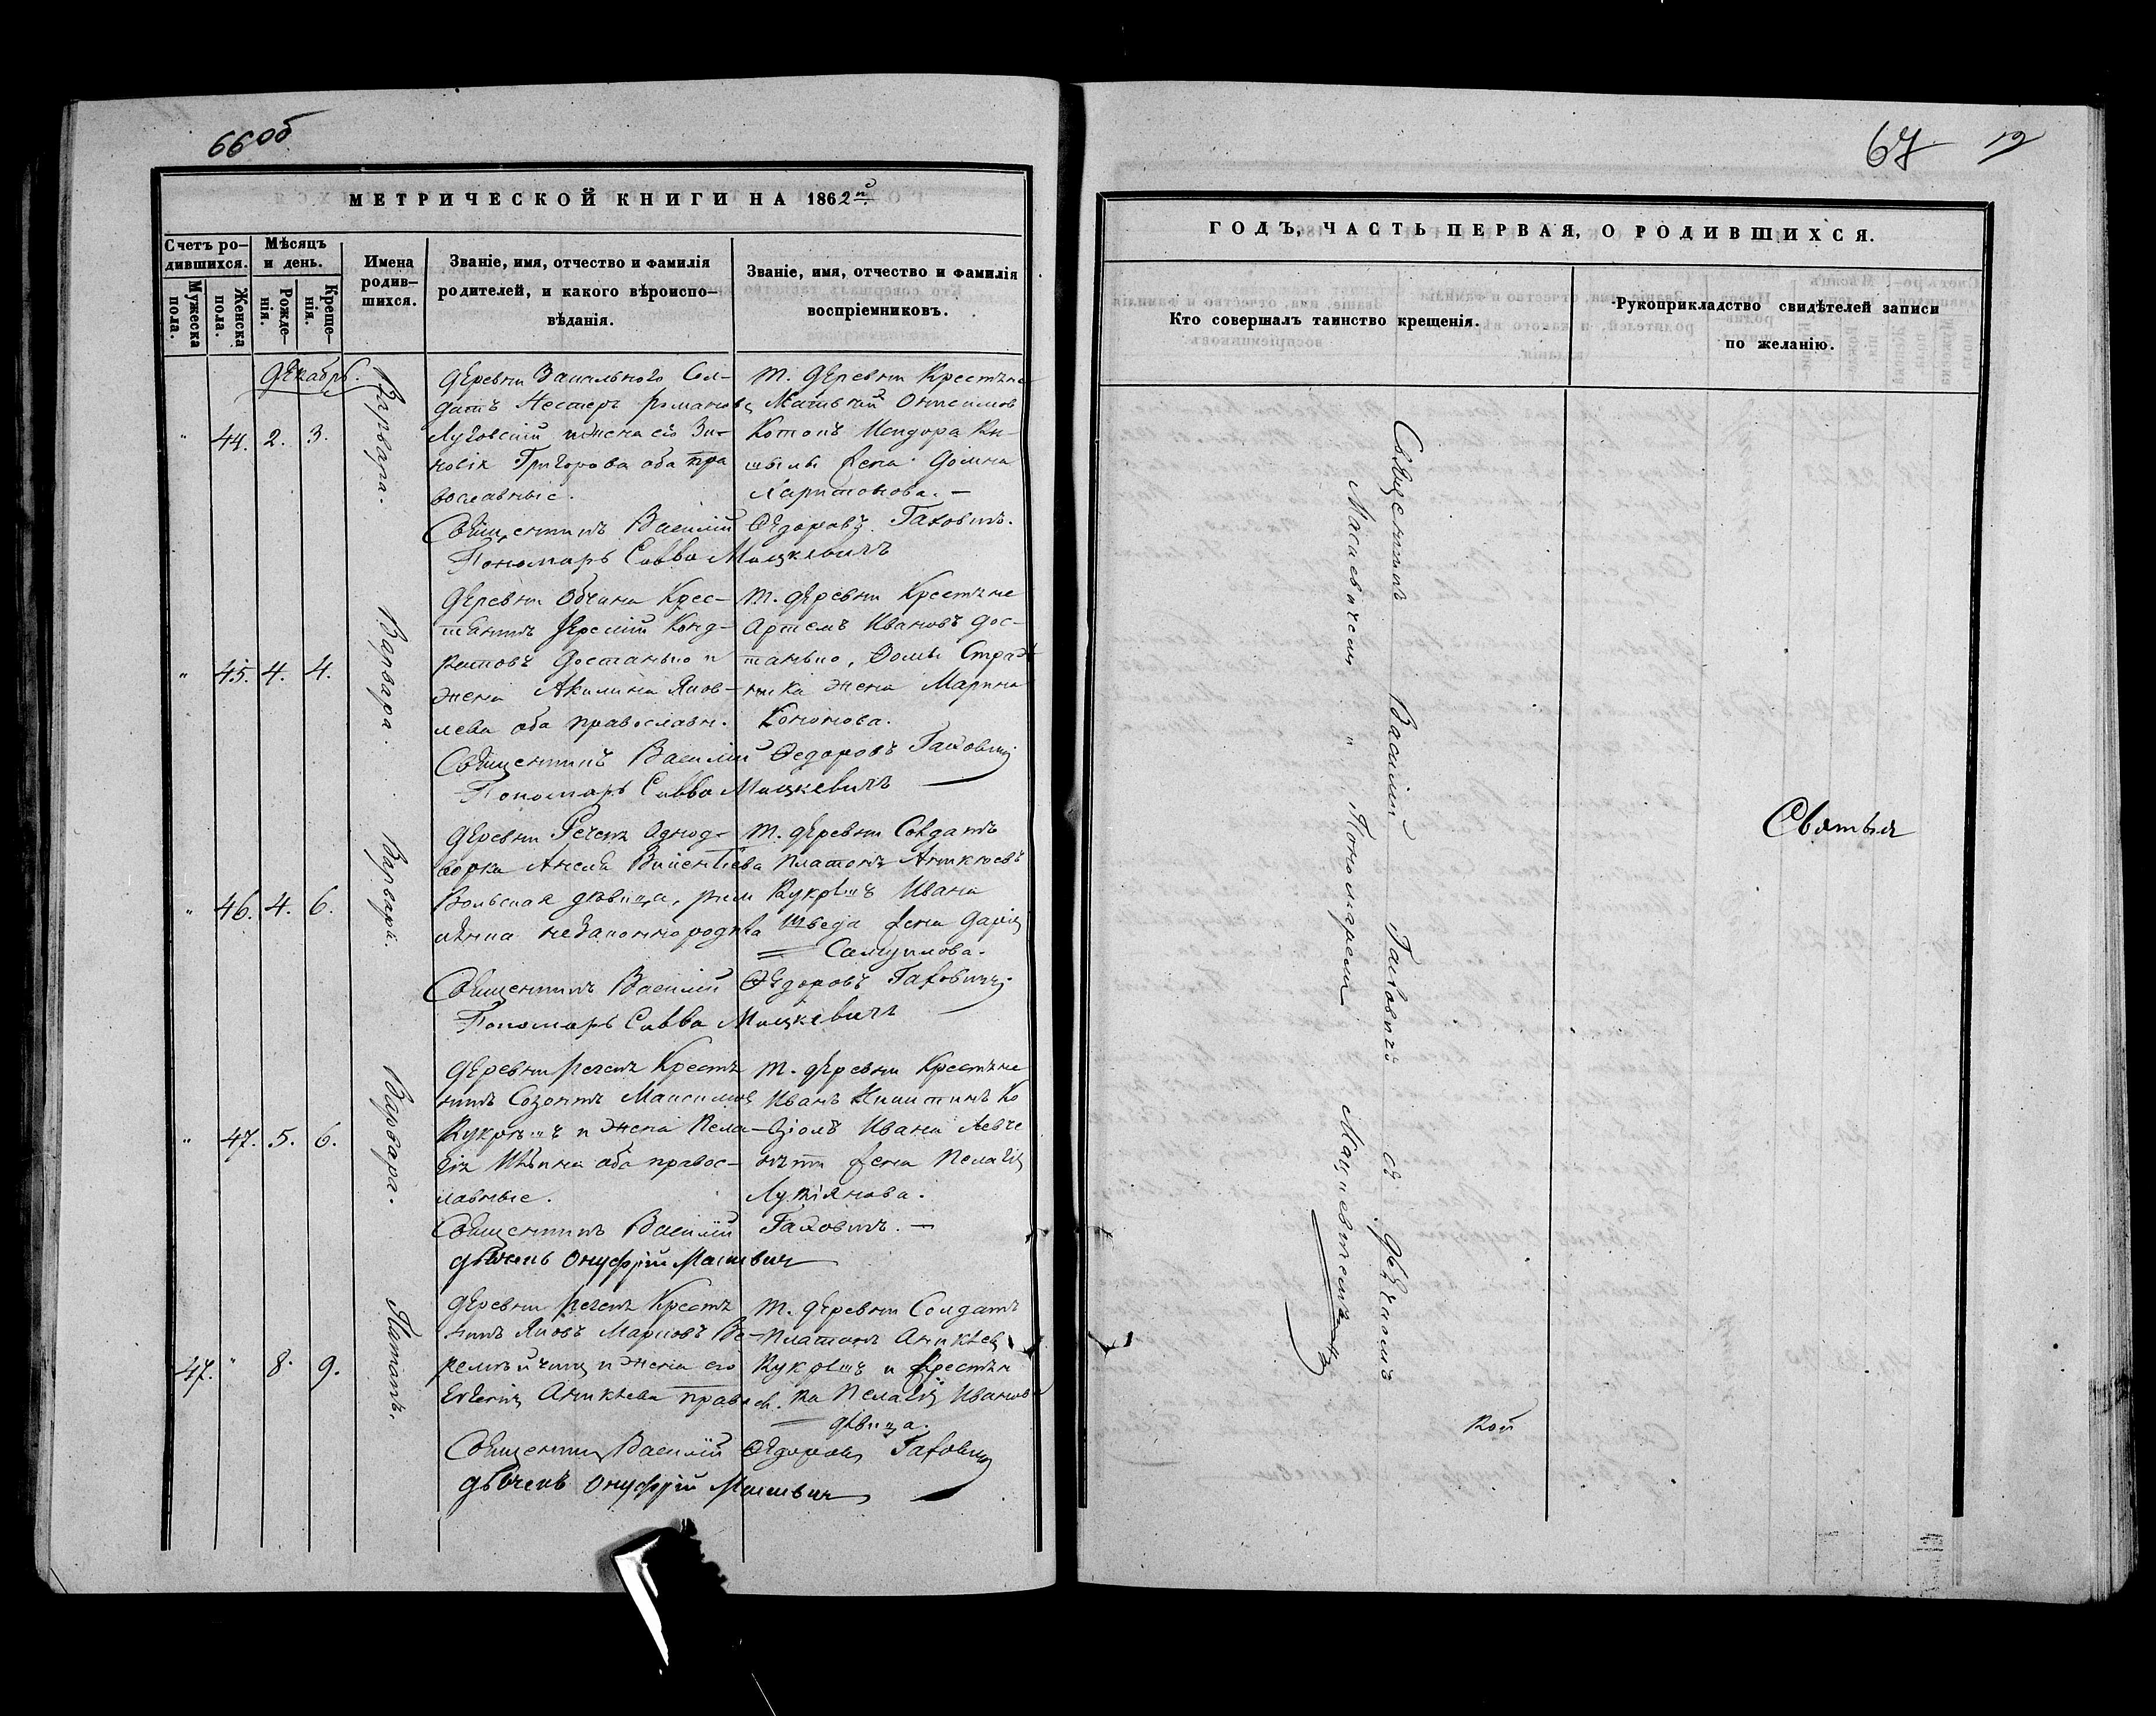 66 об
МЕТРИЧЕСКОЙ КНИГИ НА 1862й
Счетъ ро-
дившихся.
Мужеска
пола.
Женска
пола.
Мѣсяцъ
и день.
Рожде-
нія.
Креще-
нія.
Имена
родив-
шихся.
Званіе, имя, отчество и фамилія
родителей, и какого вѣроиспо-
вѣданія.
Званіе, имя, отчество и фамилія
воспріемниковъ.
Декабрь.
" 44. 2. 3.
Варвара.
деревни Запального Сол-
датъ Нестеръ Романовъ
Луговскій и жена его Зи-
новія Григорова оба пра
вославные.
т. деревни Крестьяне
Матвѣй Онисимовъ
жена Домна
Харитонова. —
Священникъ Василій Ѳедоровъ Гаховичъ.
Пономарь Савва Мацкевичъ
" 45. 4. 4.
Варвара.
деревни Крес-
тьянинъ Іеремій Конд-
ратовъ Достанько и
жена Акилина Яков-
лева оба православн.
т. деревни Крестьяне
Артемъ Ивановъ Дос-
танько, Ѳомы
жена Марина
Кононова.
Священникъ Василій Ѳедоровъ Гаховичъ
Пономарь Савва Мацкевичъ
" 46. 4. 6.
Варвара.
деревни Речень Однод-
ворка Викентіева
Вольская дѣвица, рим
незаконнорожд
т. деревни Солдатъ
Платонъ Аникіевъ
Кукрѣшъ Ивана
Шведа жена Дарія
Самуилова.
Священникъ Василій Ѳедоровъ Гаховичъ.
Пономарь Савва Мацкевичъ
" 47. 5. 6.
Варвара.
деревни Речень Крестья
нинъ Созонтъ Максимовъ
Кукрѣшъ и жена Пела-
гія оба правос-
лавные.
т. деревни Крестьяне
Иванъ Никитинъ Ко
зіолъ Ивана
жена Пелагія
Лукіянова.
Священникъ Василій Гаховичъ. —
дьячекъ Онуфрій
47. " 8. 9.
Потапъ.
деревни Речень Крестья
нинъ Яковъ Марковъ Ве-
ремѣйчикъ и жена его
Евгенія Аникіева правосл.
т. деревни Солдатъ
Платонъ Аникіевъ
Кукрѣшъ и Крестьян
ка Пелагія Иванова
дѣвица.
Священникъ Василій Ѳедоровъ Гаховичъ
дьячекъ Онуфрій
67 19
ГОДЪ, ЧАСТЬ ПЕРВАЯ, О РОДИВШИХСЯ.
Кто совершалъ таинство крещенія.
Рукоприкладство свидѣтелей записи
по желанію.
Священникъ Василій Гаховичъ съ дьячкомъ
и Пономаремъ Мацкевичемъ
Святыя
кой